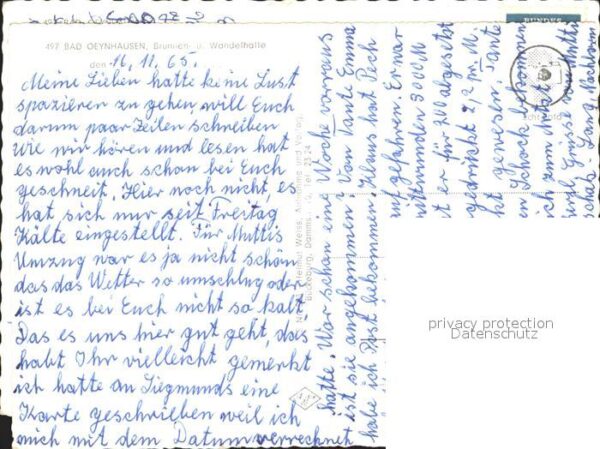 497 BAD OEYNHAUSEN, Brunnen- u. Wandelhalle
den 16.11.65.
Meine Lieben hatte keine Lust
spazieren zu gehen, will Euch
darum paar Zeilen schreiben
Wie wir hören und lesen hat
es wohl auch schon bei Euch
geschneit. Hier noch nicht, es
hat sich nur seit Freitag
Kälte eingestellt. Für Muttis
Umzug war es ja nicht schön
das das Wetter so umschlug oder
ist es bei Euch nicht so kalt.
Das es uns hier gut geht, das
habt Ihr vielleicht gemerkt
ich hatte an Siegmunds eine
Karte geschrieben weil ich
mich mit dem Datum verrechnet
hatte. War schon eine Woche vorraus
ist sie angekommen? Von Tante Emma
habe ich Post bekommen. Klaus hat Pech
auf gefahren. Er war
3000 M
t er für 200 abgesetzt
gedrückt 2,2 m. M.
kt gewesen. Tante
en Schock bekommen
ich zum
Grüsse von Muttis
Helmut Weiss,
Bückeburg,
BUNDES
privacy protection
Datenschutz